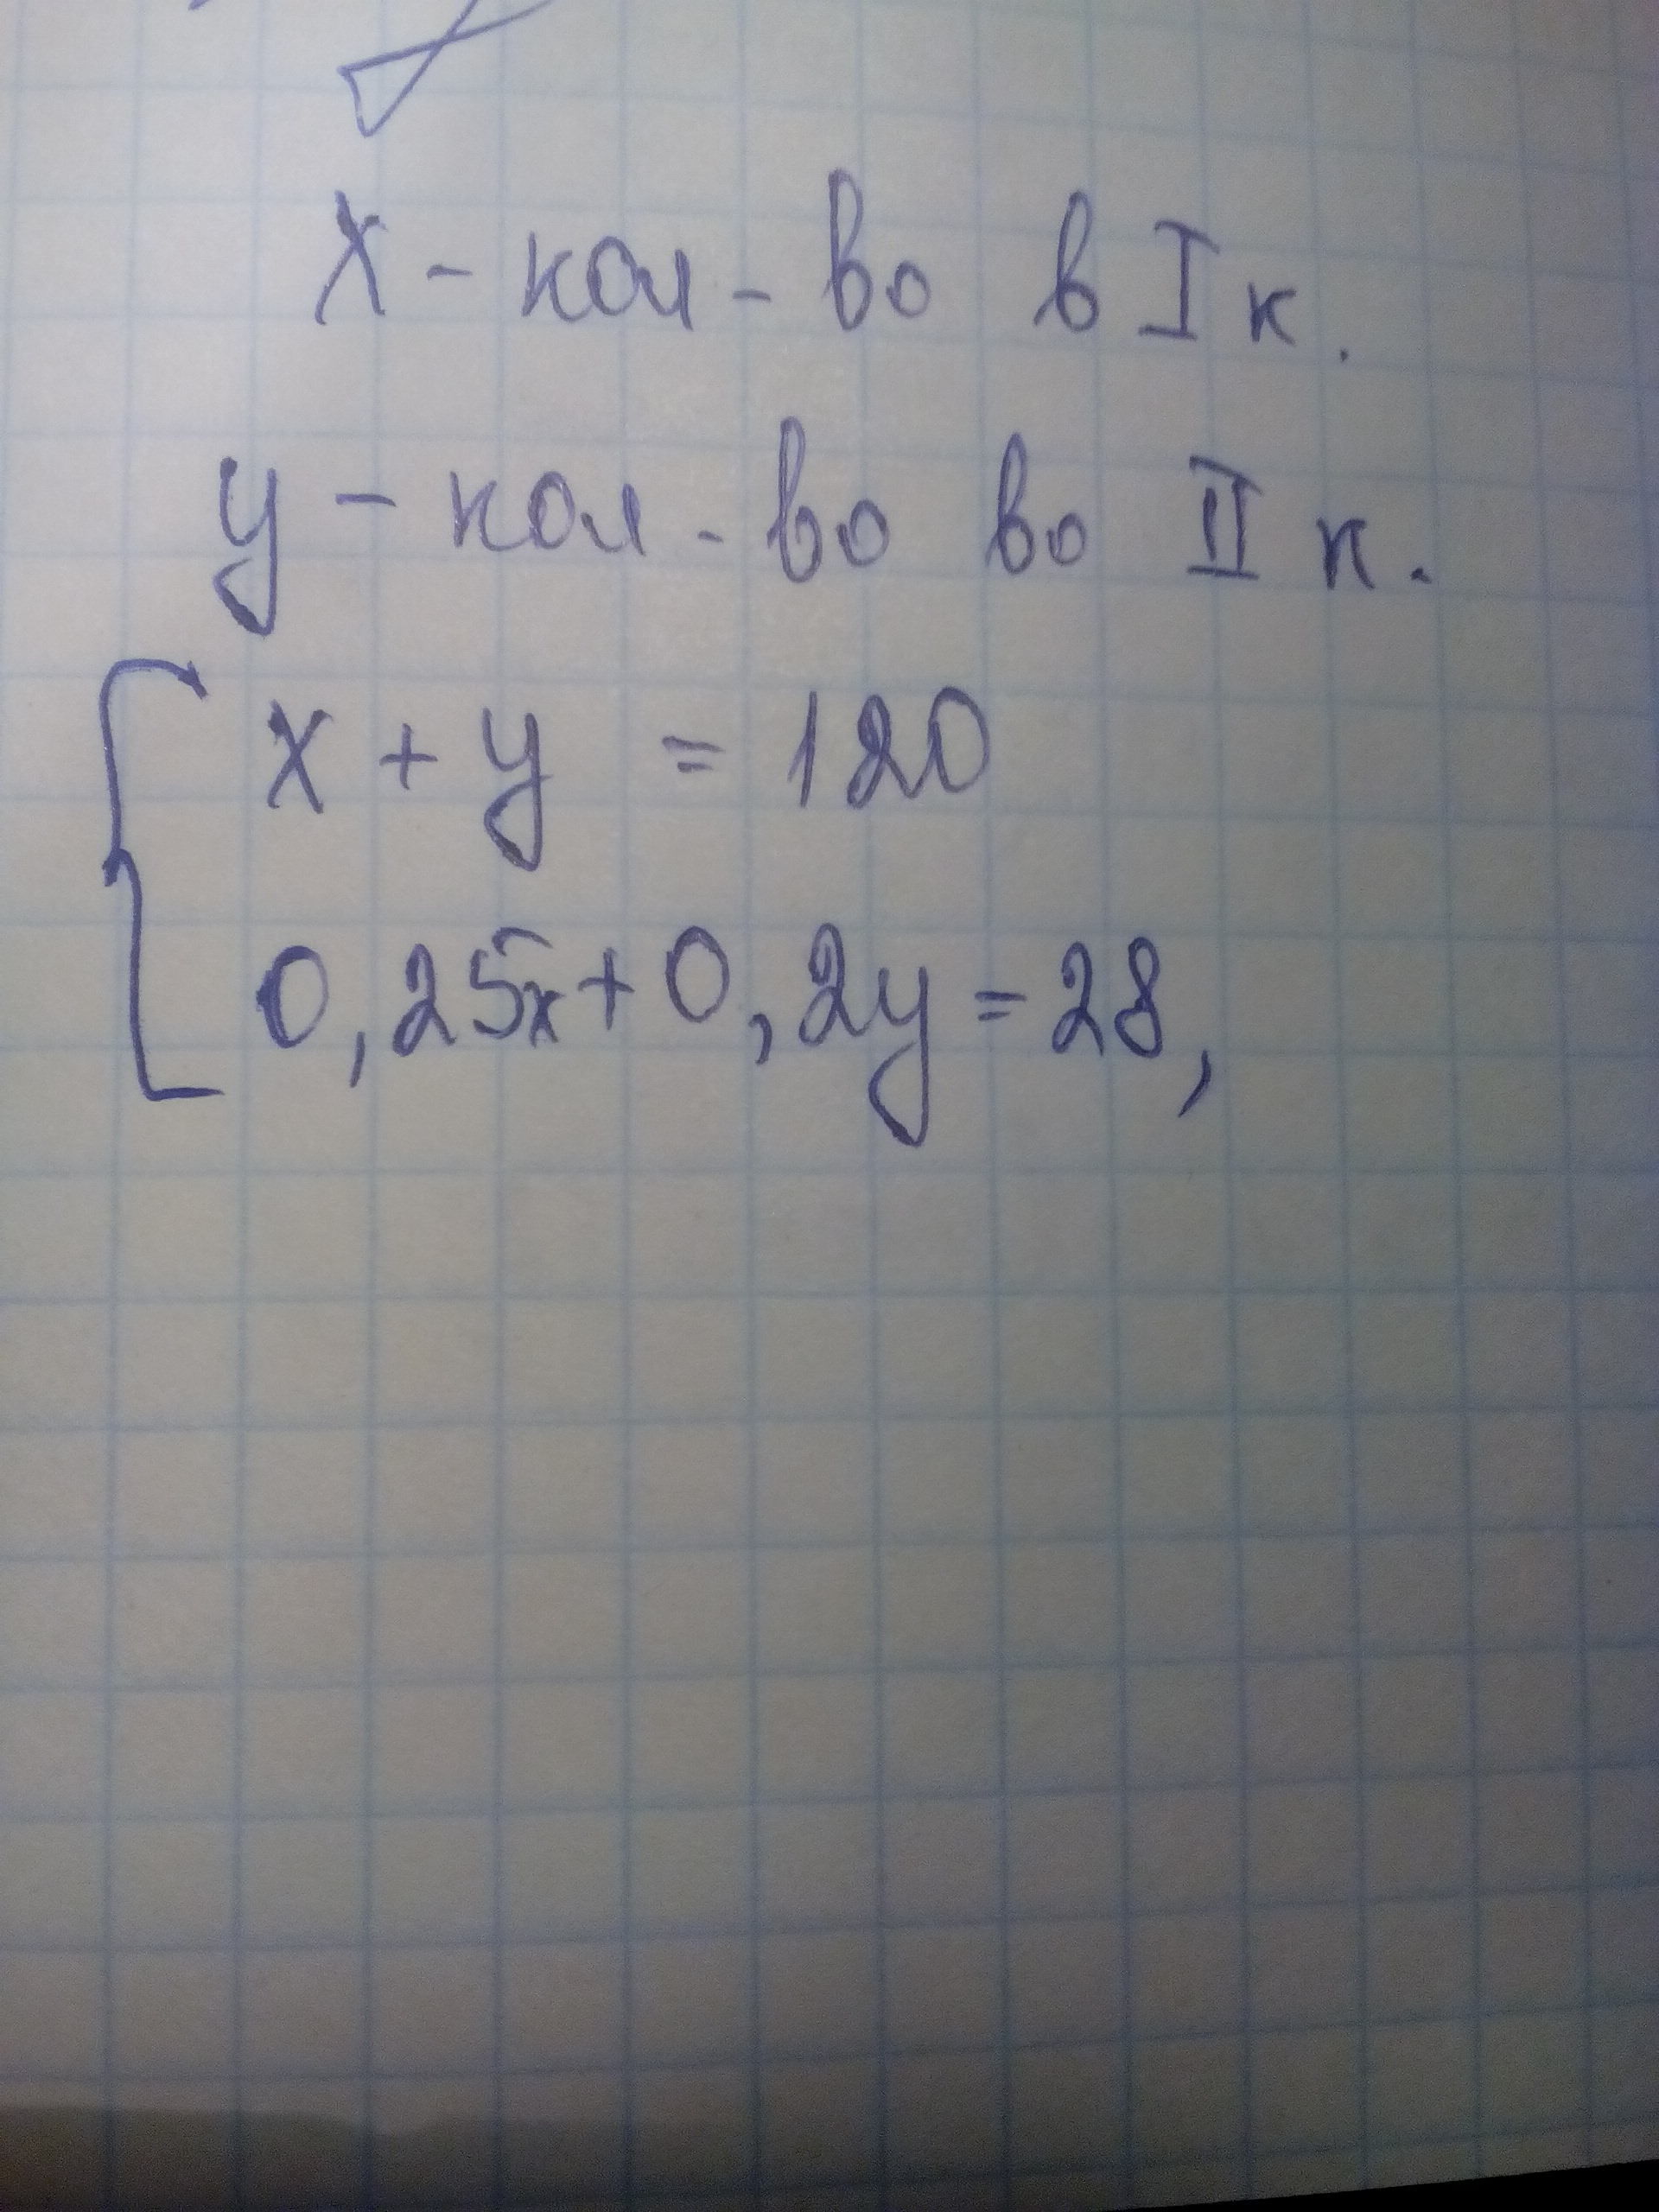 x - кол-во в I к.
y - кол-во во II к.
x + y = 120
0,25x + 0,2y = 28,